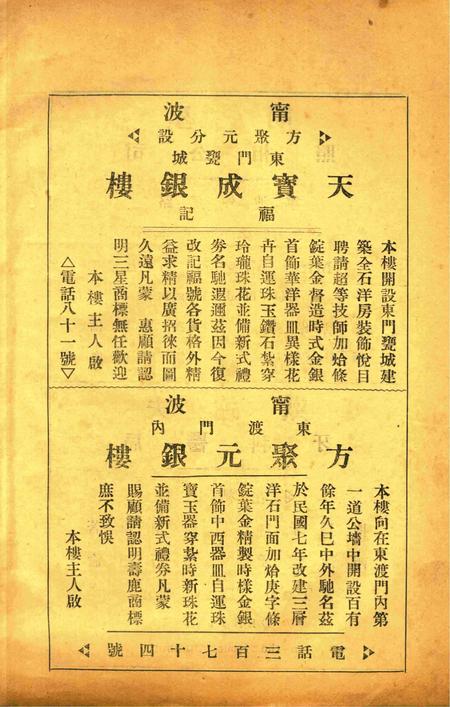 甯波
方聚元分設
東門甕城
天寳成銀樓
福記
本樓開設東門甕城建
築全石洋房裝飾悅目
聘請超等技師加𤇆條
錠葉金督造時式金銀
首飾華洋器皿異樣花
卉自運珠玉鑽石紮穿
玲瓏珠花並備新式禮
券名馳遐邇茲因今復
改記福號各貨格外精
益求精以廣招徠而圖
久遠凡蒙 惠顧請認
明三星商標無任歡迎
本樓主人啟
△電話八十一號▽
甯波
東渡門內
方聚元銀樓
本樓向在東渡門內第
一道公墻中開設百有
餘年久已中外馳名茲
於民國七年改建三層
洋石門面加𤇆庚字條
錠葉金精製時樣金銀
首飾中西器皿自運珠
寶玉器穿紮時新珠花
並備新式禮券凡蒙
賜顧請認明壽鹿商標
庶不致悞
本樓主人啟
電話三百七十四號